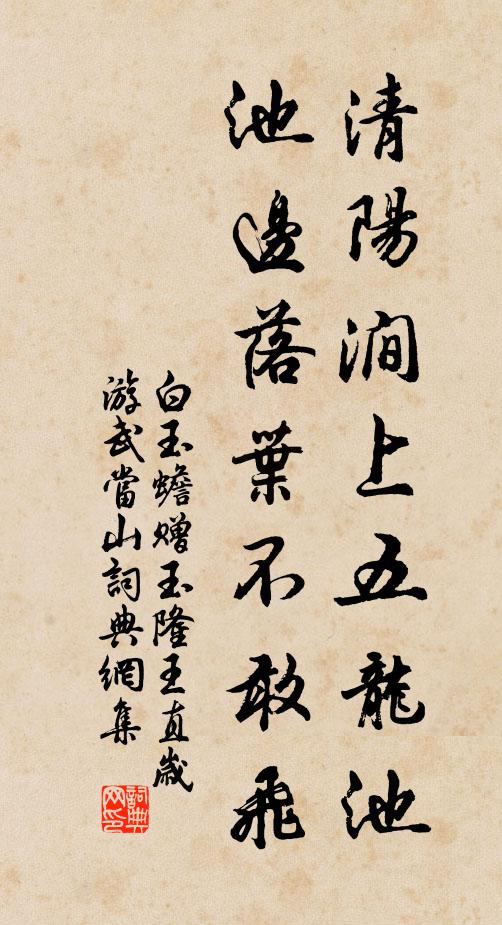 清陽澗上五龍池
池邊落葉不敢飛
白玉蟾贈玉隆王直歲
游武當山詞典網集
詞典网印